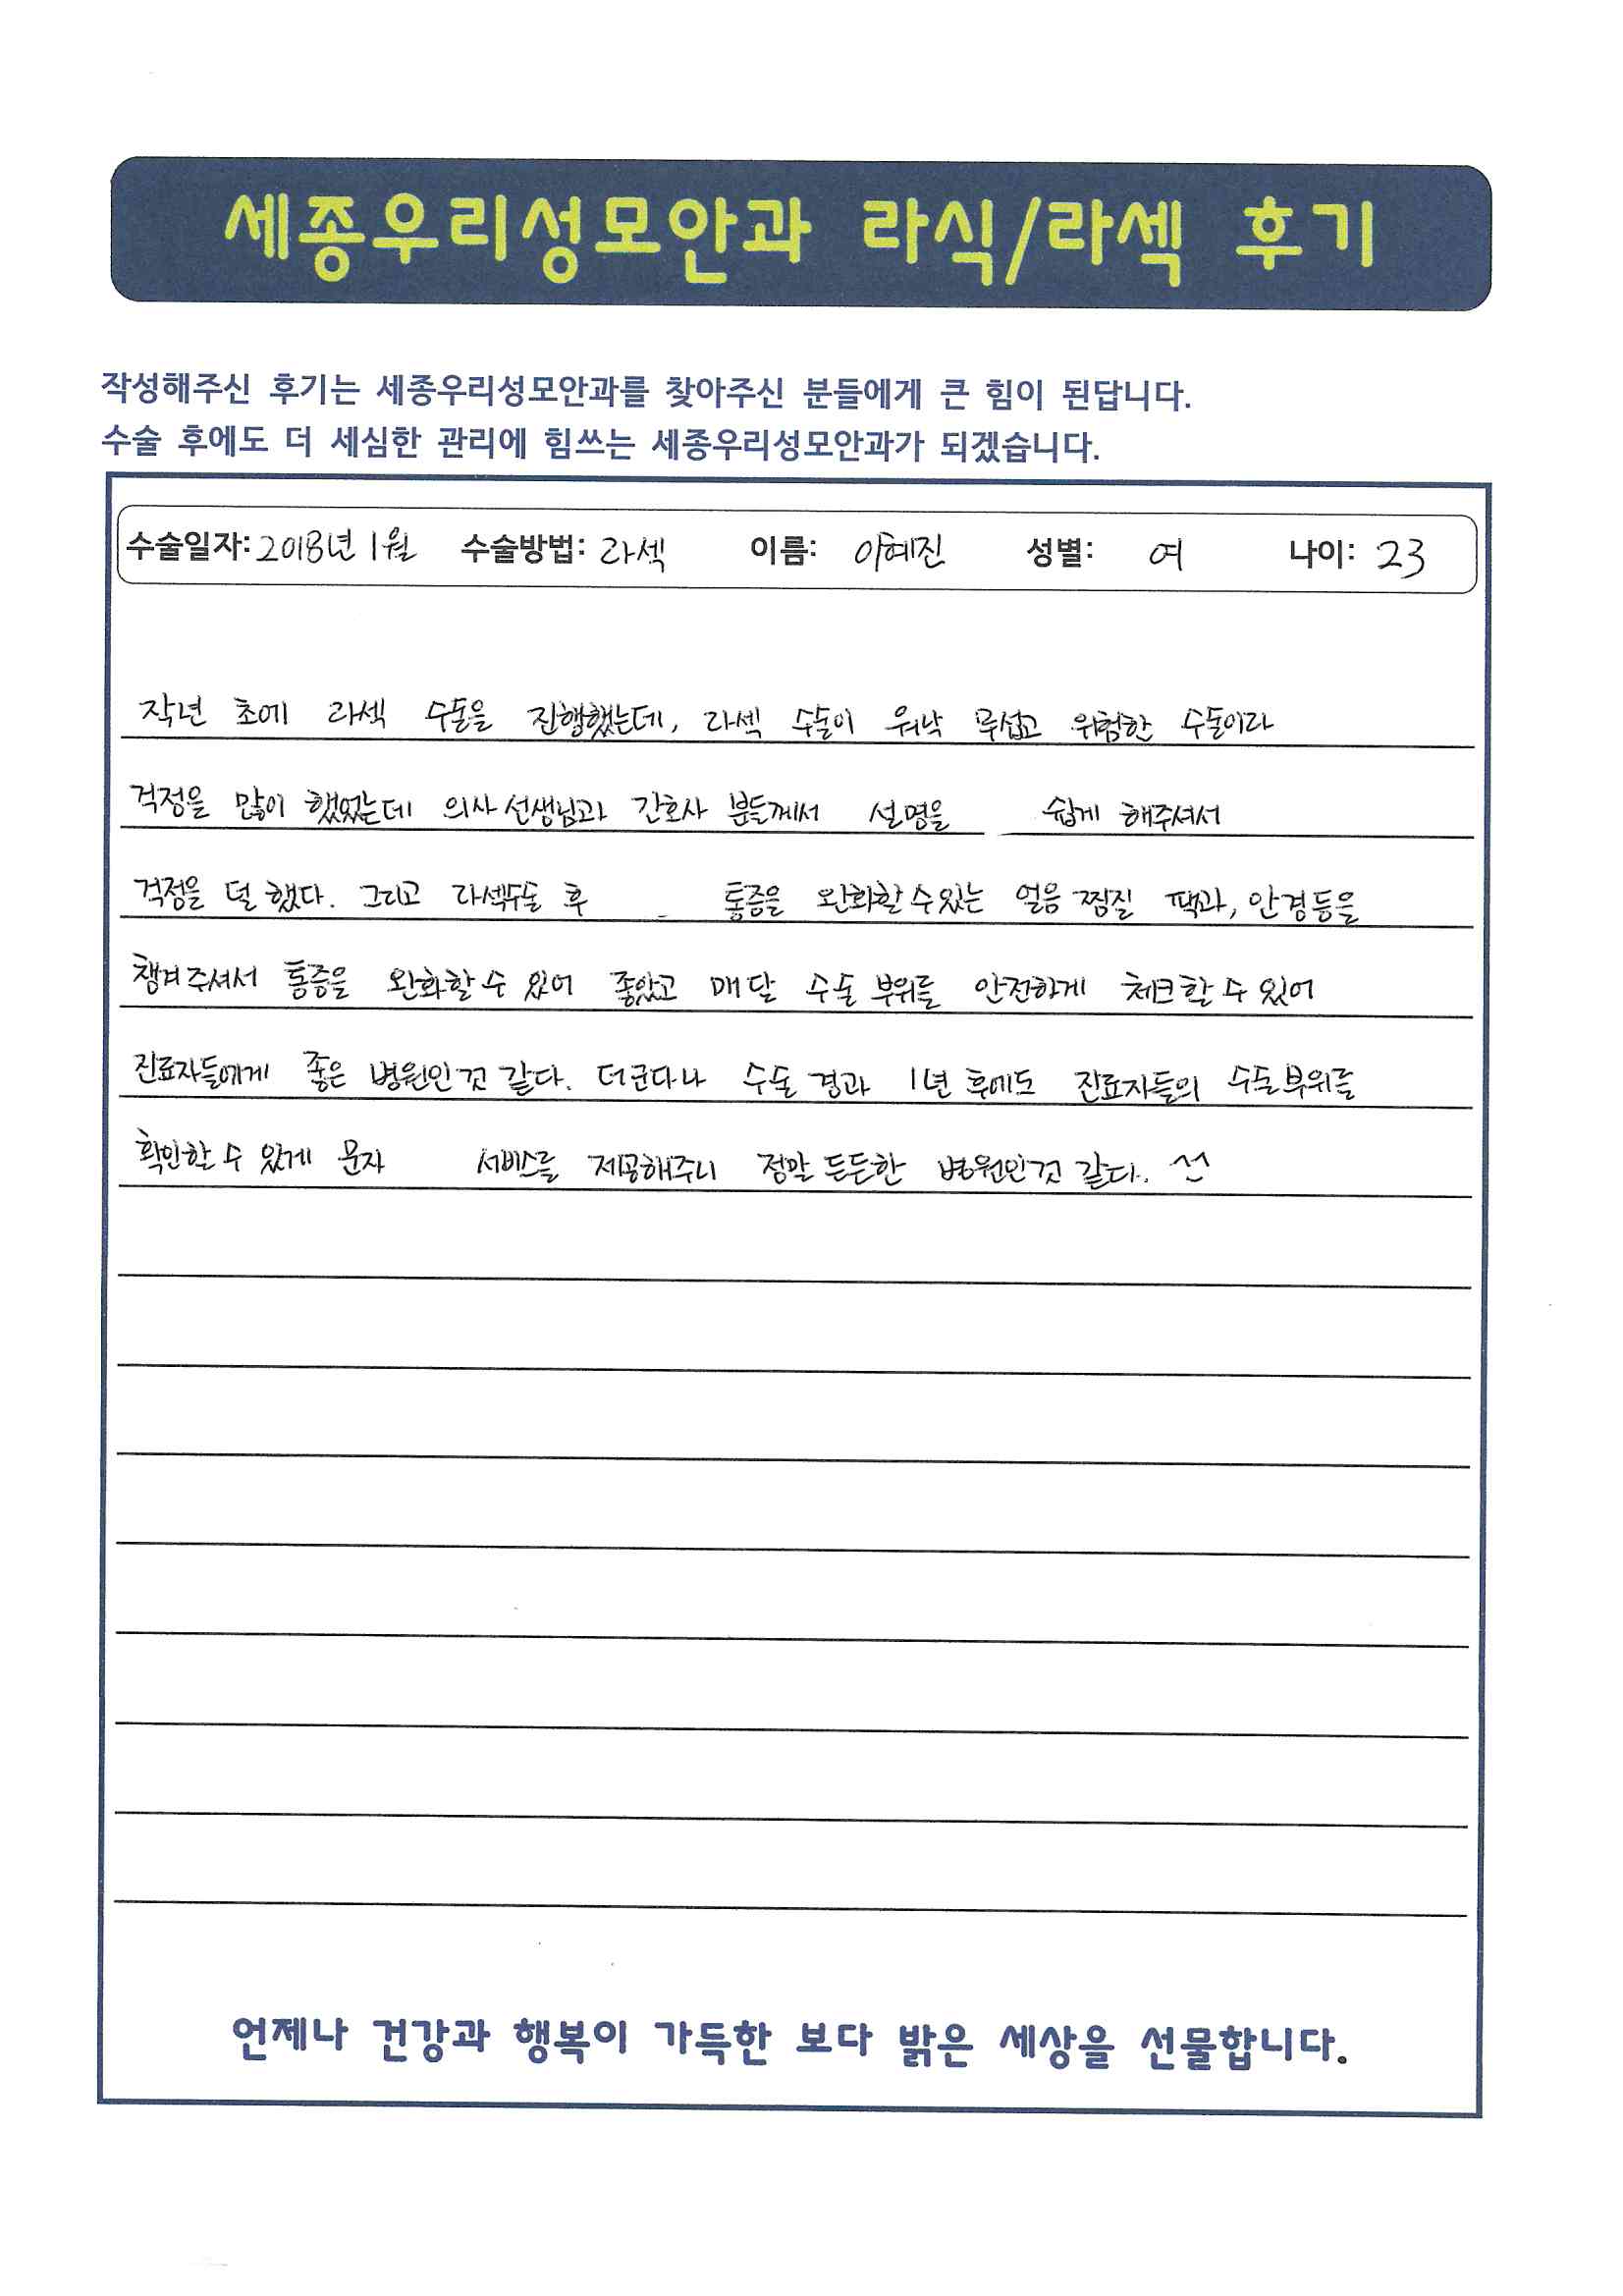 세종우리성모안과 라식/라섹 후기
작성해주신 후기는 세종우리성모안과를 찾아주신 분들에게 큰 힘이 된답니다.
수술 후에도 더 세심한 관리에 힘쓰는 세종우리성모안과가 되겠습니다.
수술일자: 2018년 1월 수술방법: 라섹 이름: 이혜진 성별: 여 나이: 23
작년 초에 라섹 수술을 진행했는데, 라섹 수술이 워낙 무섭고 위험한 수술이라
걱정을 많이 했었는데 의사선생님과 간호사 분들께서 설명을 쉽게 해주셔서
걱정을 덜 했다. 그리고 라섹수술 후 통증을 완화할 수 있는 얼음 찜질 팩과, 안경등을
챙겨주셔서 통증을 완화할 수 있어 좋았고 매달 수술 부위를 안전하게 체크할 수 있어
진료자들에게 좋은 병원인것 같다. 더군다나 수술 경과 1년 후에도 진료자들의 수술부위를
확인할 수 있게 문자 서비스를 제공해주니 정말 든든한 병원인것 같다.
언제나 건강과 행복이 가득한 보다 밝은 세상을 선물합니다.